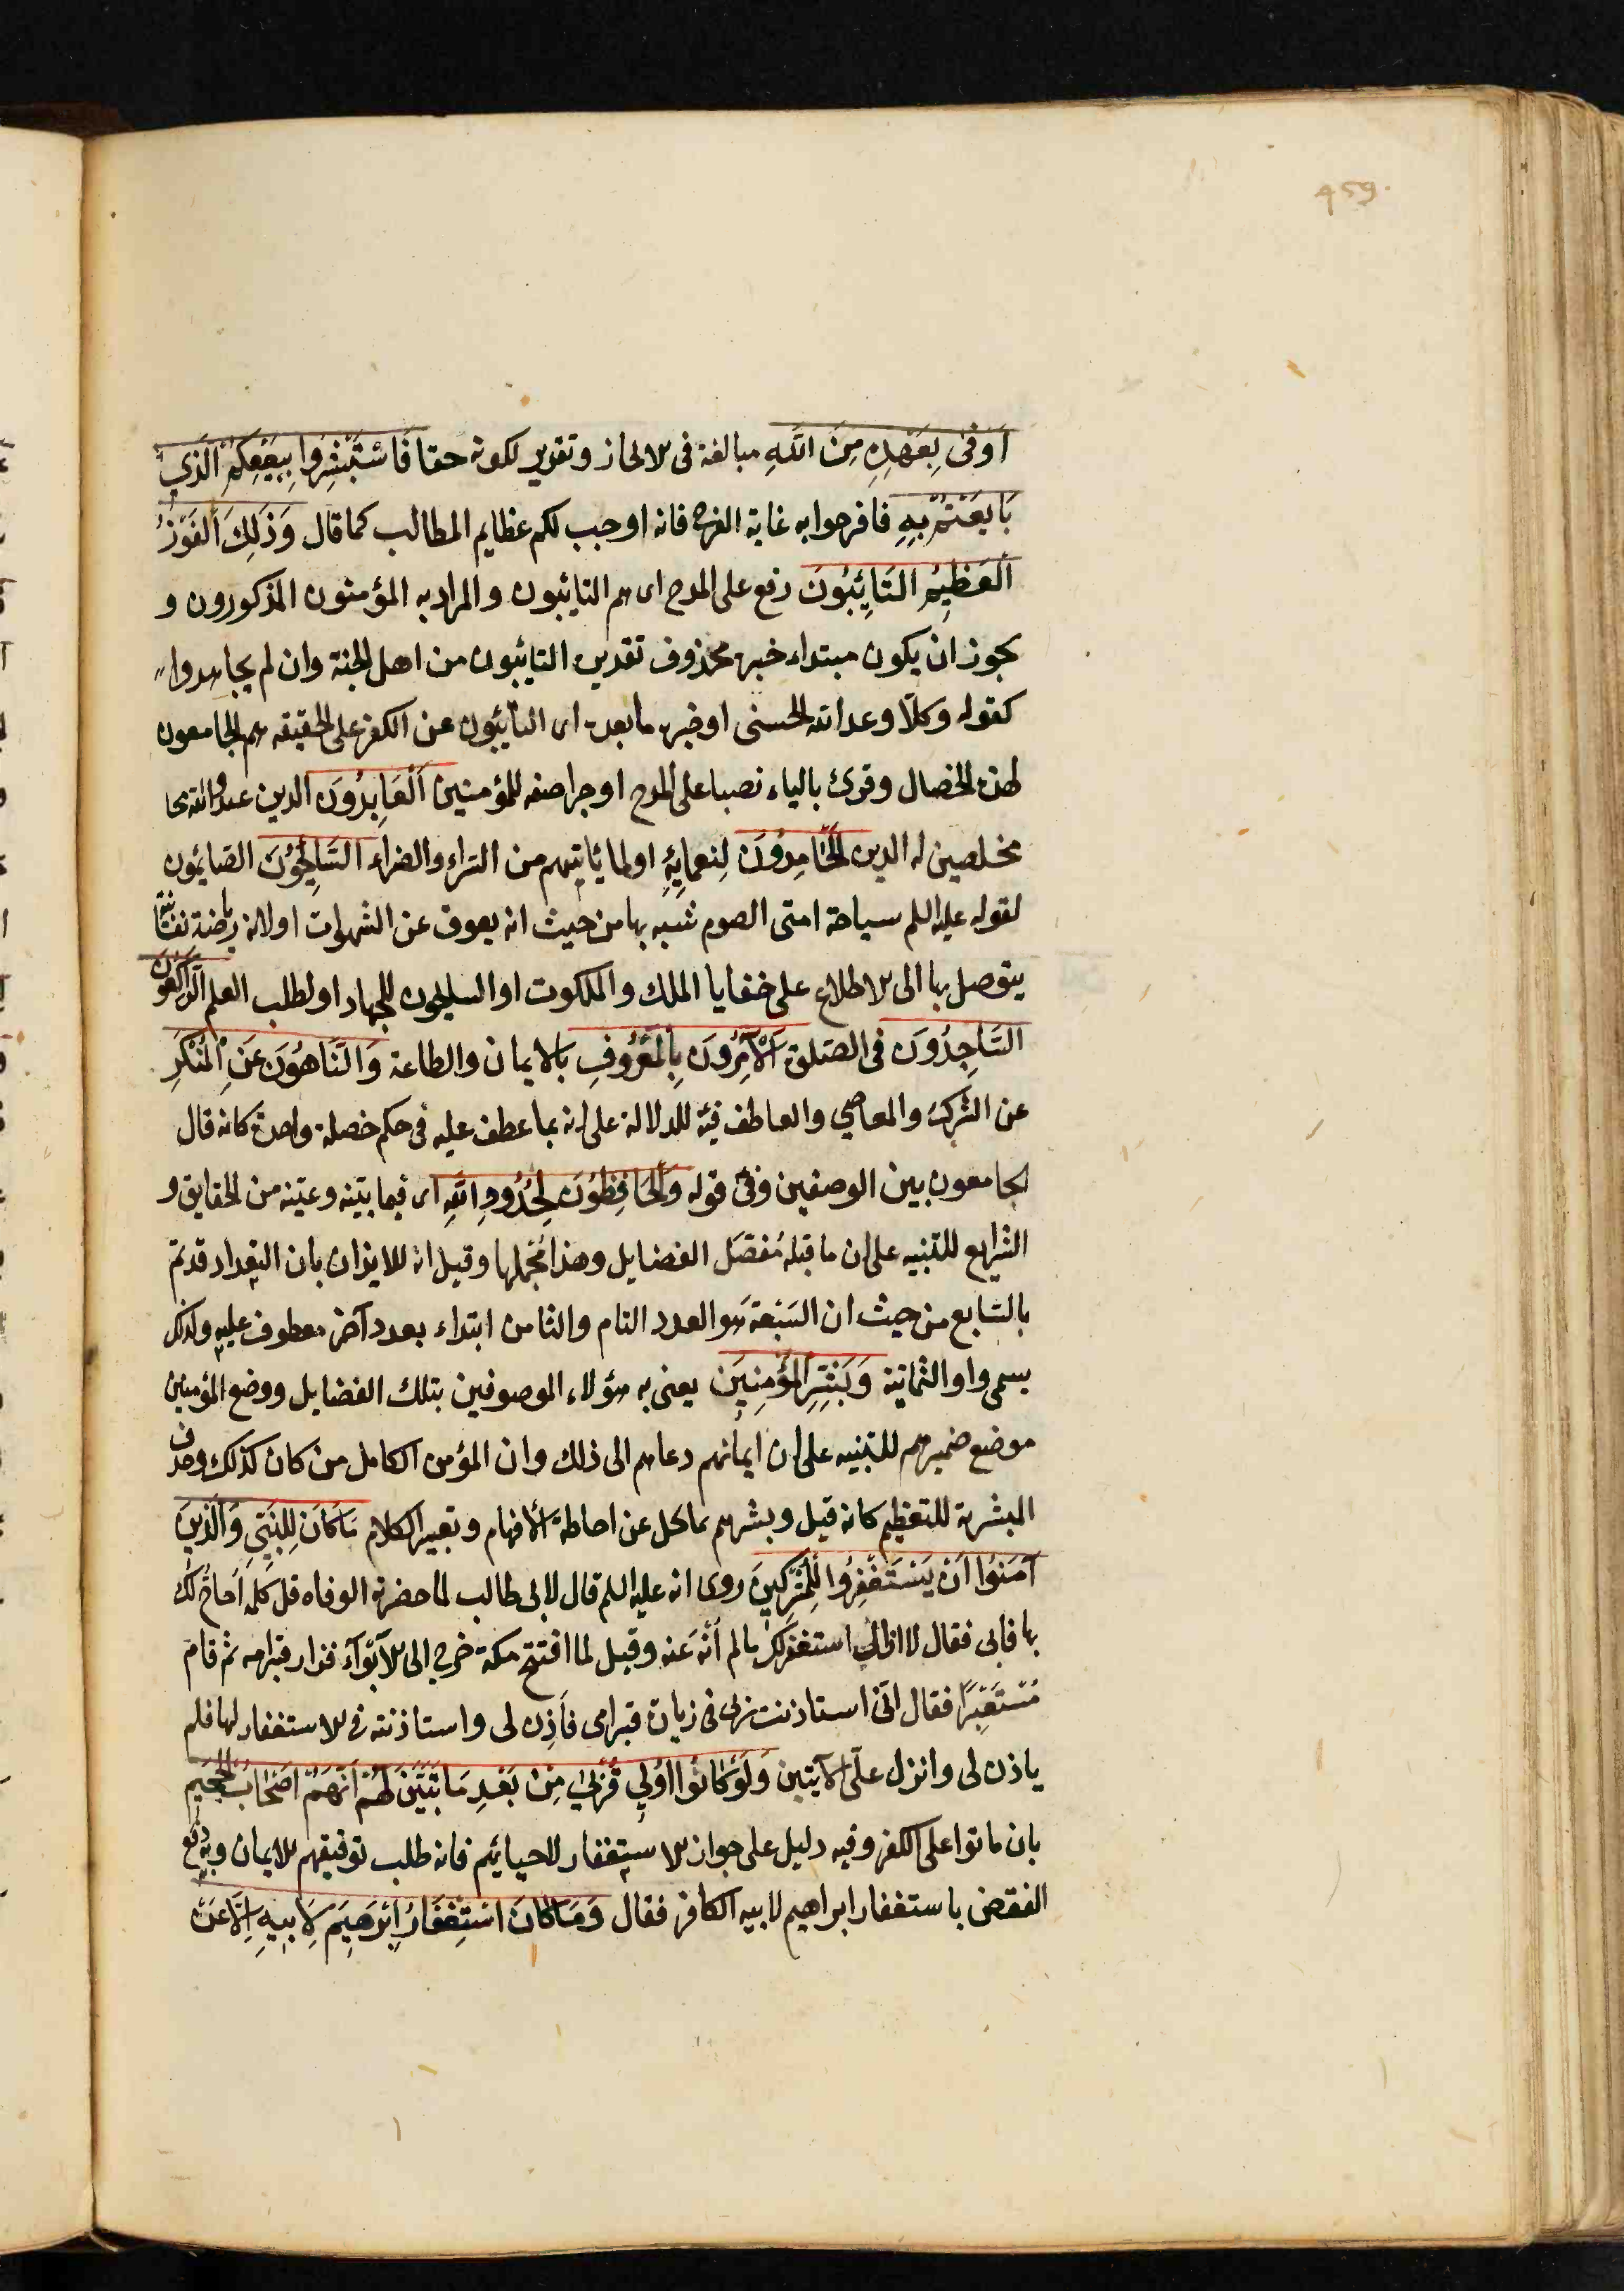 459.
اَوْفٰى بِعَهْدِهِ مِنَ اللّٰهِ مبالغة فى الانجاز وتقرير لكونه حقا فَاسْتَبْشِرُوا بِبَيْعِكُمْ الَّذِي
بَايَعْتُمْ بِهِ فافرحوا به غاية الفرح فانه اوجب لكم عظايم المطالب كما قال وَذٰلِكَ الْفَوْزُ
الْعَظِيمُ التَّائِبُونَ رفع على المدح اى هم التائبون والمراد به المؤمنون المذكورون و
يجوز ان يكون مبتداء خبره محذوف تقديره التائبون من اهل الجنة وان لم يجاهدوا
كقوله وكلا وعد الله الحسنى او خبره ما بعده اى التائبون عن الكفر على الحقيقه هم الجامعون
لهذه الخصال وقرئ بالياء نصبا على المدح او جرا صفه للمؤمنين اَلْعَابِدُونَ الذين عبدوا الله
مخلصين له الدين الْحَامِدُونَ لِنعمايِهِ او لما ياتيهم من السراء والضراء السَّائِحُونَ الصايمون
لقوله عليه السلم سياحة امتى الصوم شبه بها من حيث انه يعوق عن الشهوات او لانه رياضة نفسانية
يتوصل بها الى الاطلاع على خفايا الملك والملكوت او السايحون للجهاد او لطلب العلم الرَّاكِعُونَ
السَّاجِدُونَ فى الصلوة اَلْآمِرُونَ بِالْمَعْرُوفِ بالايمان والطاعة وَالنَّاهُونَ عَنِ الْمُنْكَرِ
عن الشرك والمعاصي والعاطف فيه للدلالة على انه بما عطف عليه فى حكم خصلة واحدة كانه قال
الجامعون بين الوصفين وفى قوله وَالْحَافِظُونَ لِحُدُودِ اللّٰهِ اى فيما بينه وعينه من الحقايق و
الشرايع للتنبيه على ان ما قبله مُفَصَّل الفضايل وهذا مُجْمَلها وقيل انه للايذان بان التعداد قد تم
بالسابع من حيث ان السبعة هو العدد التام والثامن ابتداء بعدد آخر معطوف عليه ولذلك
يسمى واو الثمانية وَبَشِّرِ الْمُؤْمِنِينَ يعنى به هؤلاء الموصوفين بتلك الفضايل ووضع المؤمنين
موضع ضميرهم للتنبيه على ان ايمانهم دعاهم الى ذلك وان المؤمن الكامل من كان كذلك وحذف
المبشر به للتعظيم كانه قيل وبشرهم بما يجل عن احاطة الافهام وتعبير الكلام مَا كَانَ لِلنَّبِيِّ وَالَّذِينَ
آمَنُوا اَنْ يَسْتَغْفِرُوا لِلْمُشْرِكِينَ روى انه عليه السلم قال لابى طالب لما حضرته الوفاه قل كلمة اُحاجّ لك
بها فابى فقال لا ازال استغفر لك ما لم اُنْهَ عنه وقيل لما افتتح مكة خرج الى الابواء فزار قبر امه ثم قام
مُسْتَعْبِرًا فقال انى استاذنت ربى فى زيارة قبر امى فأذن لى واستاذنته فى الاستغفار لها فلم
ياذن لى وانزل علىّ الآيتين وَلَوْ كَانُوا اُولِي قُرْبٰى مِنْ بَعْدِ مَا تَبَيَّنَ لَهُمْ اَنَّهُمْ اَصْحَابُ الْجَحِيمِ
بان ماتوا على الكفر وفيه دليل على جواز الاستغفار لاحيائهم فانه طلب توفيقهم للايمان وبه دفع
النقض باستغفار ابراهيم لابيه الكافر فقال وَمَا كَانَ اسْتِغْفَارُ اِبْرٰهِيمَ لِاَبِيهِ اِلَّا عَنْ